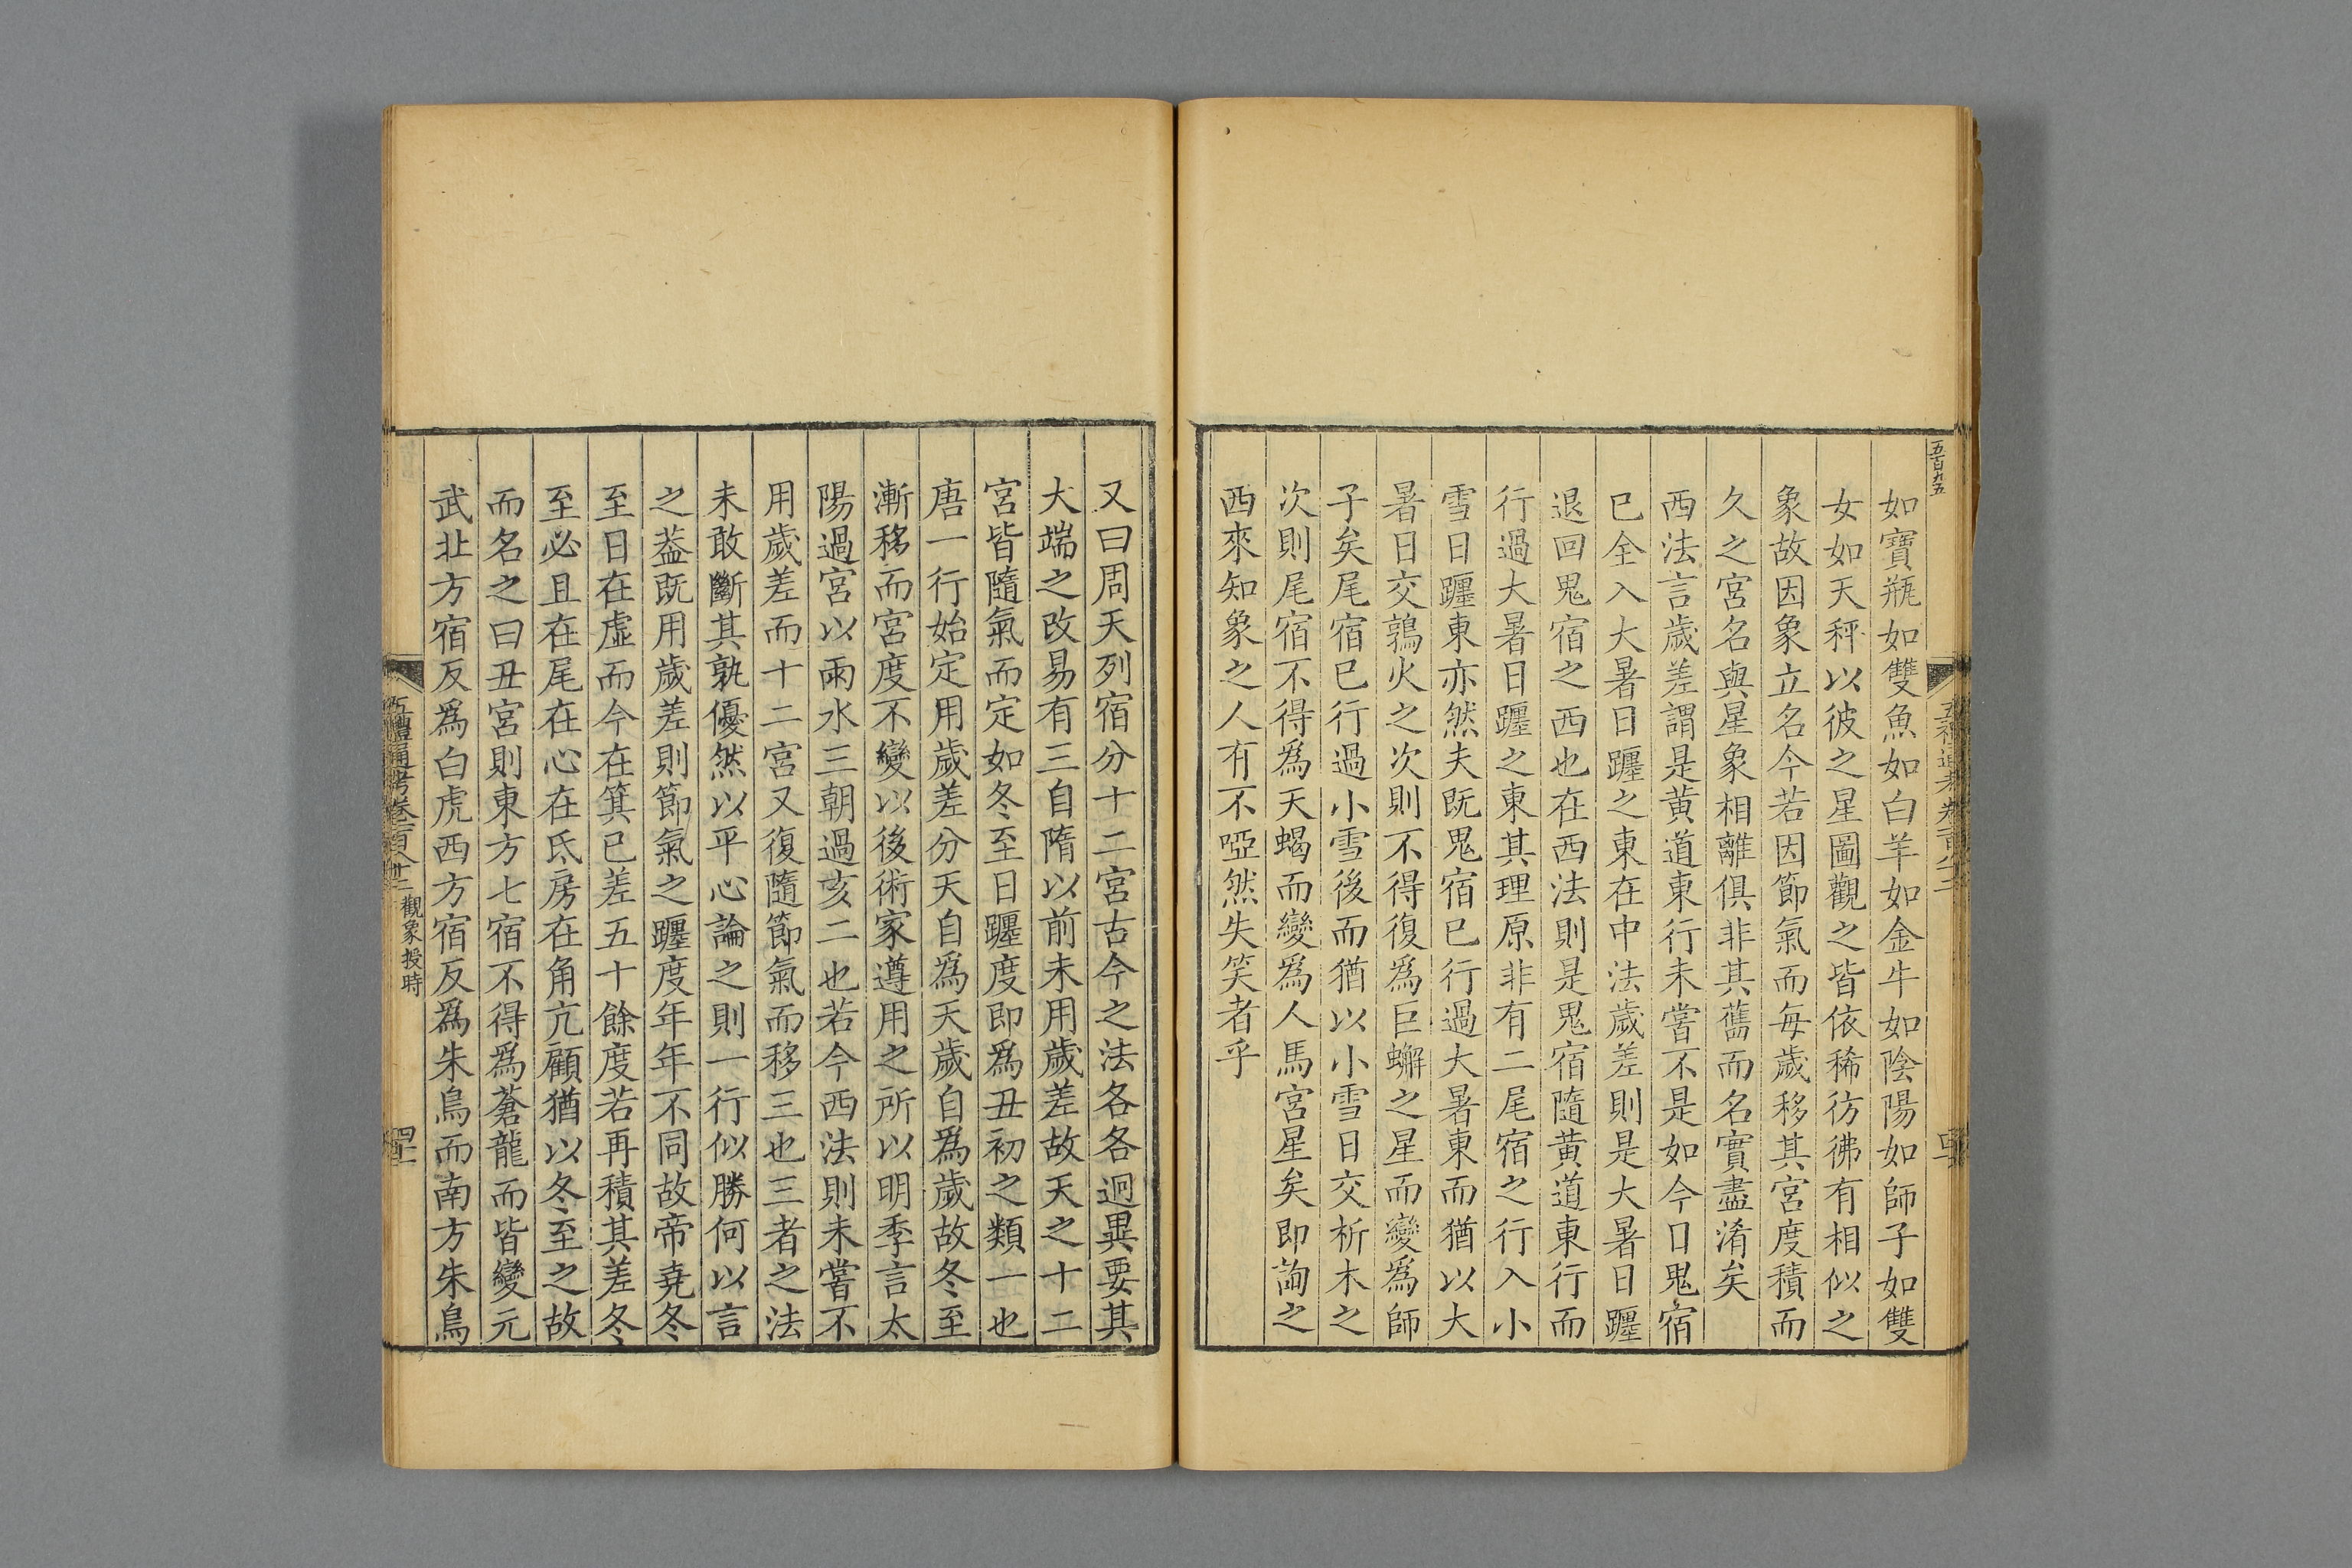 五百九五
如寶瓶如雙魚如白羊如金牛如陰陽如師子如雙
女如天秤以彼之星圖觀之皆依稀彷彿有相似之
象故因象立名今若因節氣而每歲移其宮度積而
久之宮名與星象相離俱非其舊而名實盡淆矣
西法言歲差謂是黃道東行未嘗不是如今日鬼宿
已全入大暑日躔之東在中法歲差則是大暑日躔
退回鬼宿之西也在西法則是鬼宿隨黃道東行而
行過大暑日躔之東其理原非有二尾宿之行入小
雪日躔東亦然夫既鬼宿已行過大暑東而猶以大
暑日交鶉火之次則不得復爲巨蠏之星而變爲師
子矣尾宿已行過小雪後而猶以小雪日交析木之
次則尾宿不得爲天蝎而變爲人馬宮星矣即詢之
西來知象之人有不啞然失笑者乎
又曰周天列宿分十二宮古今之法各各迥異要其
大端之改易有三自隋以前未用歲差故天之十二
宮皆隨氣而定如冬至日躔度即爲丑初之類一也
唐一行始定用歲差分天自爲天歲自爲歲故冬至
漸移而宮度不變以後術家遵用之所以明季言太
陽過宮以雨水三朝過亥二也若今西法則未嘗不
用歲差而十二宮又復隨節氣而移三也三者之法
未敢斷其孰優然以平心論之則一行似勝何以言
之葢既用歲差則節氣之躔度年年不同故帝堯冬
至日在虛而今在箕已差五十餘度若再積其差冬
至必且在尾在心在氐房在角亢顧猶以冬至之故
而名之曰丑宮則東方七宿不得爲蒼龍而皆變元
武北方宿反爲白虎西方宿反爲朱鳥而南方朱鳥
五禮通考卷一百八十二 觀象授時